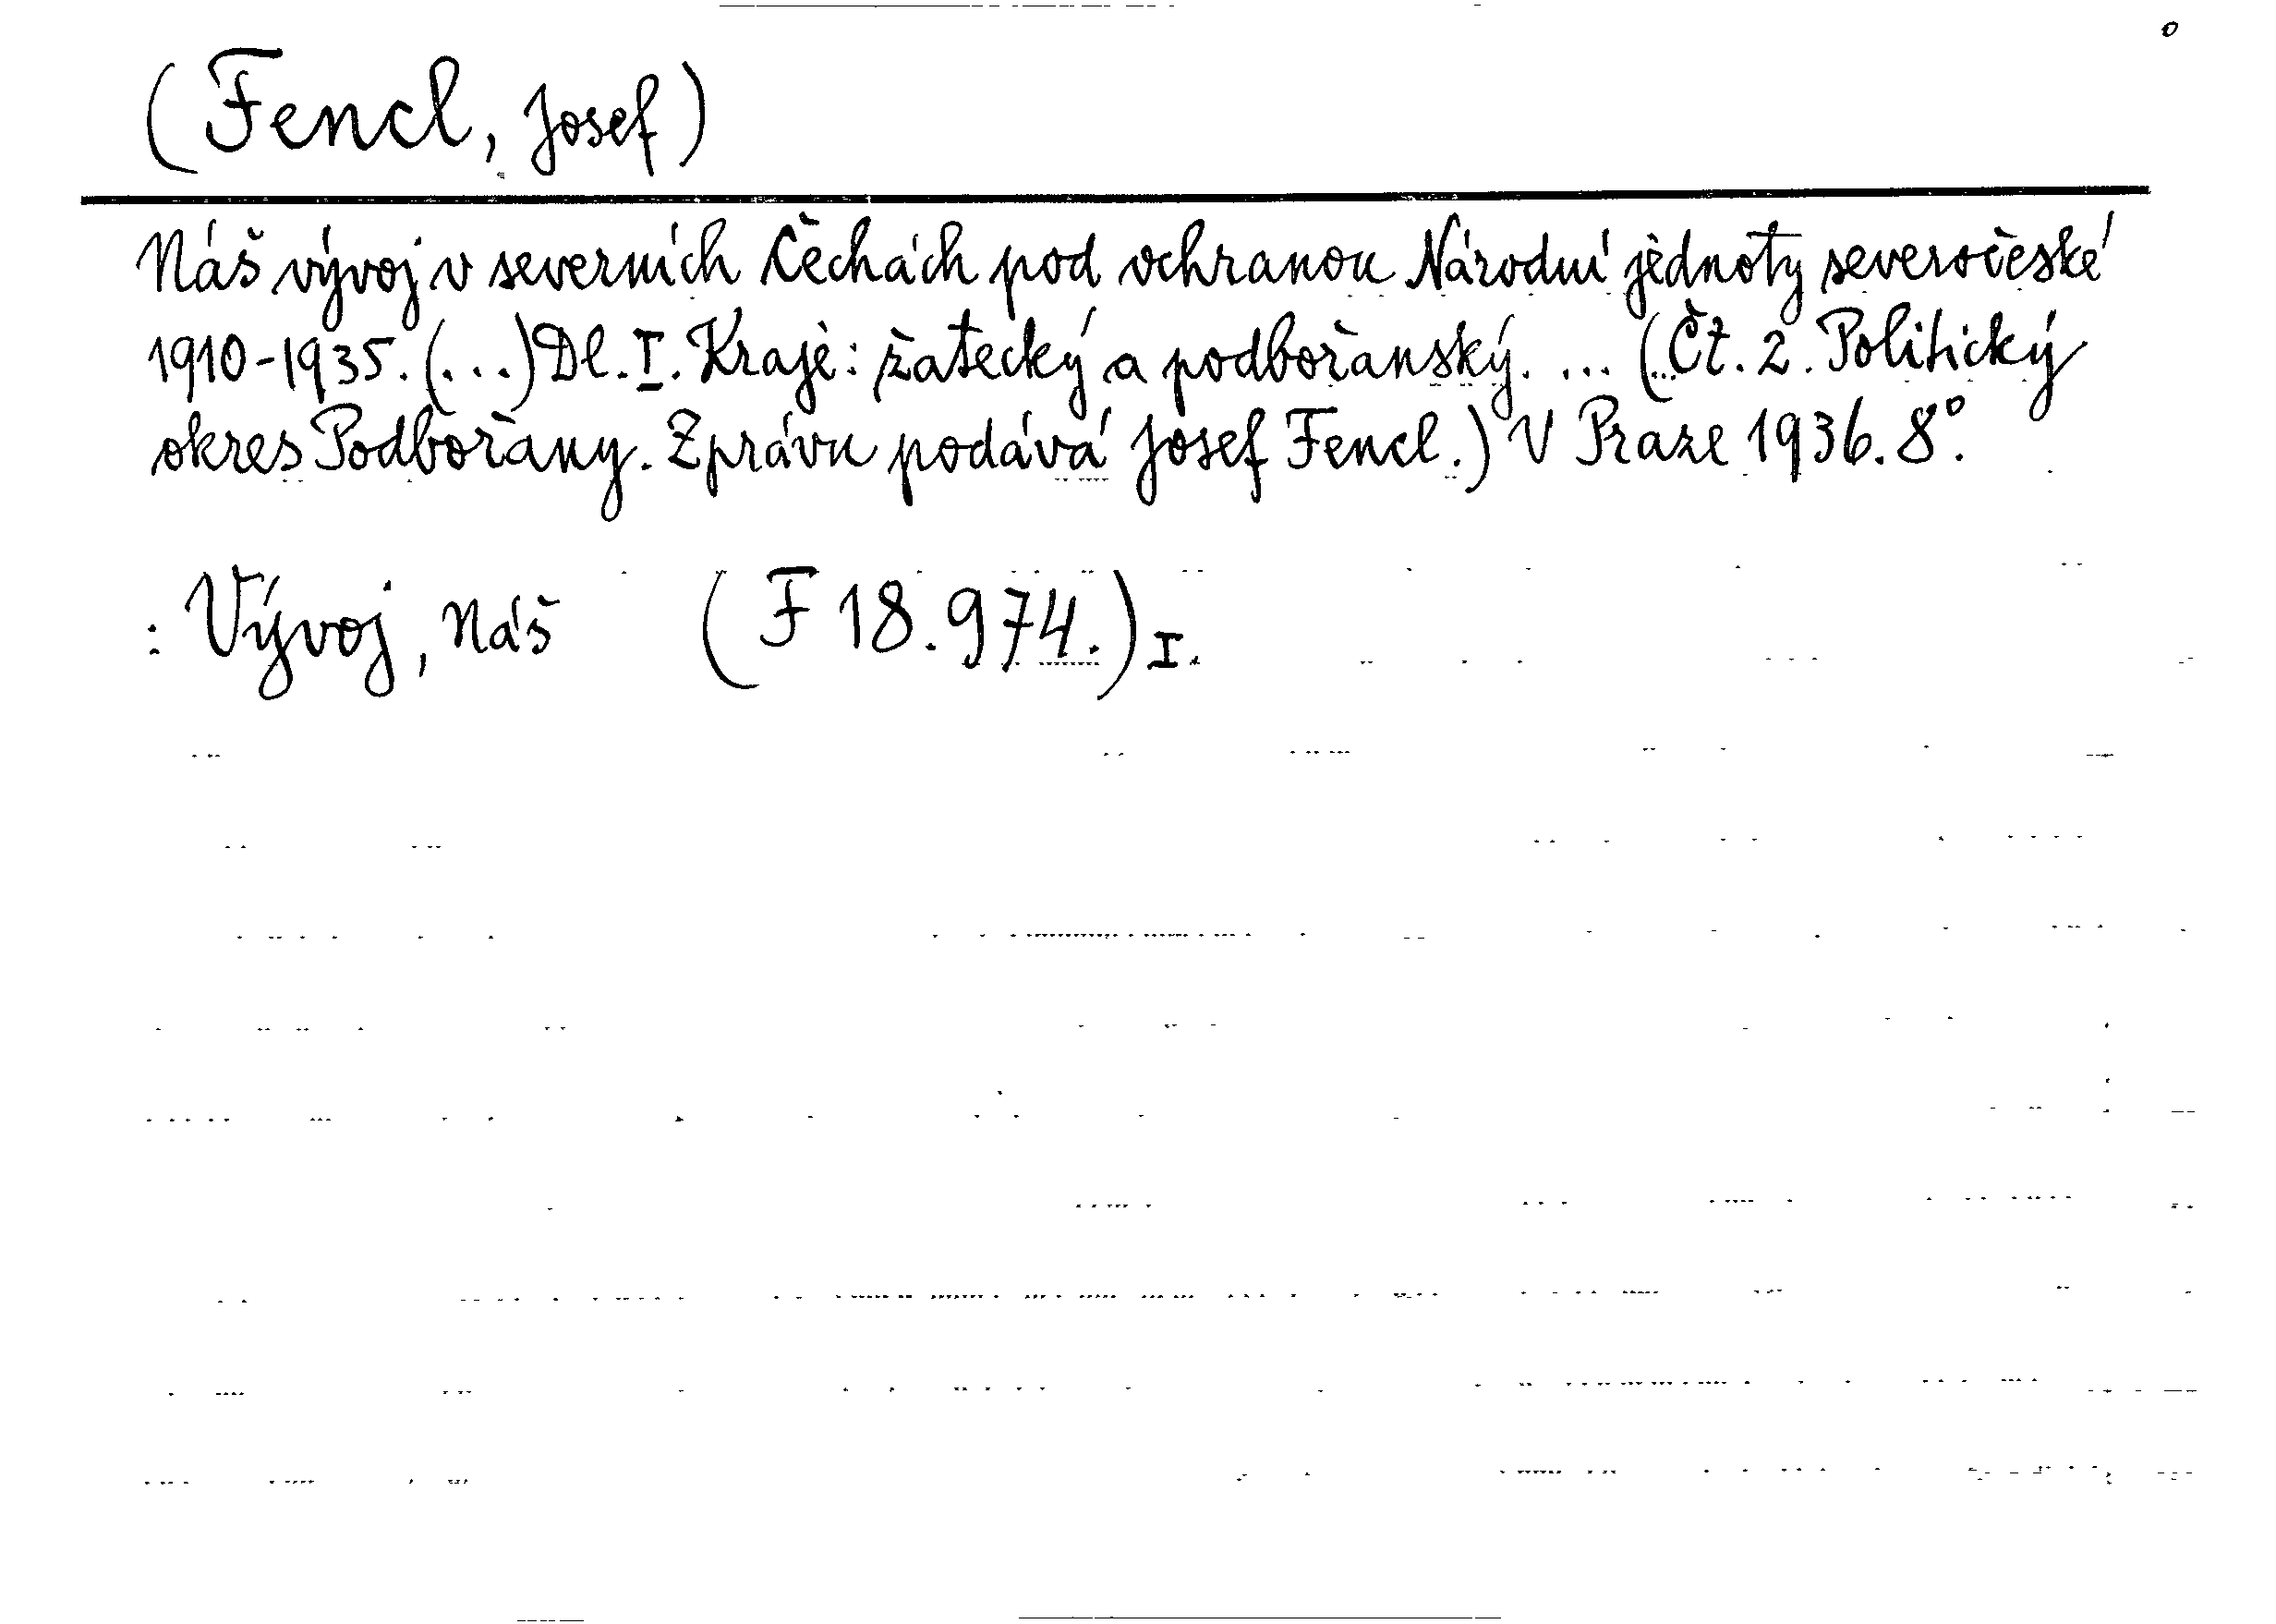 (Fencl, Josef)
Náš vývoj v severních Čechách pod ochranou Národní jednoty severočeské
1910-1935. (...) Dl. I. Kraje: žatecký a podbořanský. ... (Čt. 2. Politický
okres Podbořany. Zprávu podává Josef Fencl.) V Praze 1936. 8°.
: Vývoj, Náš (F 18.974.) I.